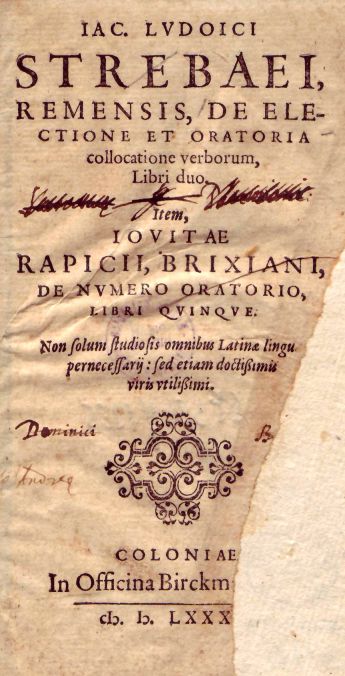 IAC. LVDOICI
STREBAEI,
REMENSIS, DE ELE-
CTIONE ET ORATORIA
collocatione verborum,
Libri duo.
Item,
IOVITAE
RAPICII, BRIXIANI,
DE NVMERO ORATORIO,
LIBRI QVINQVE.
Non ſolum ſtudioſis omnibus Latinæ lingu
perneceſſarij: ſed etiam doctißimis
viris vtilißimi.
Dominici B
Andrea
COLONIAE
In Officina Birckm
cIɔ. Iɔ. LXXX